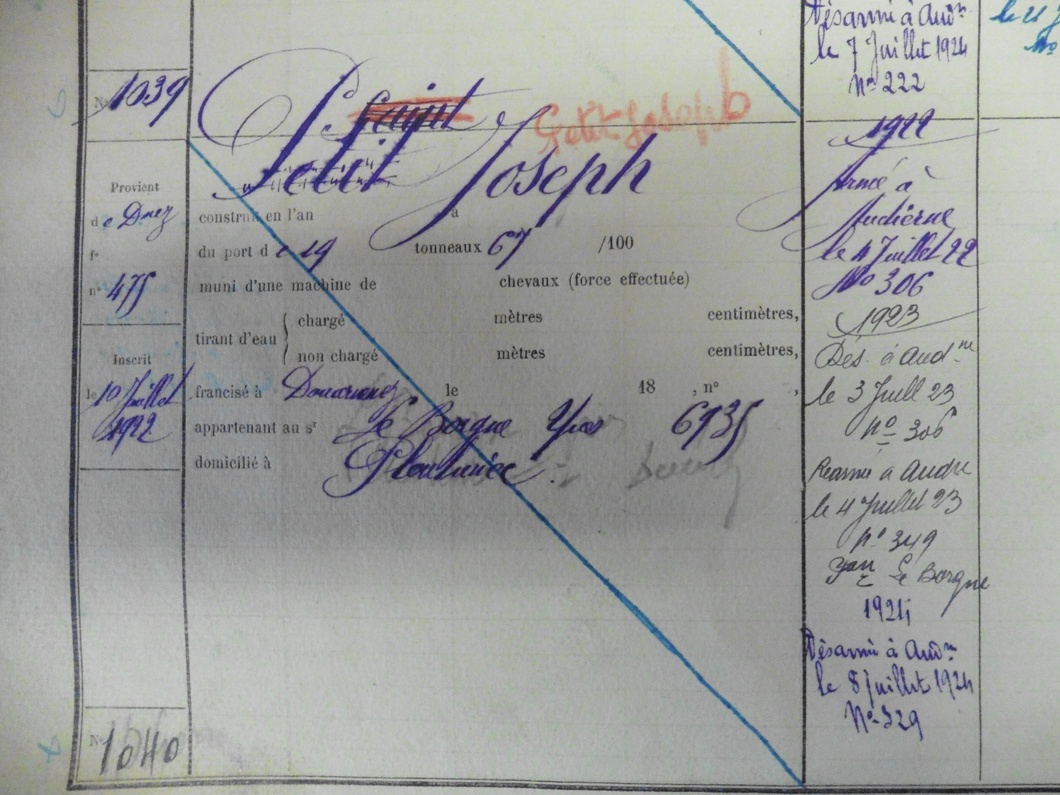 Désarmé à Aud.ne
le 7 Juillet 1924
No 222
No 1039
Petit Joseph
Petit Joseph
Provient
de Dnez
fo
no 475
Inscrit
le 10 Juillet
1922
construit en l'an à
du port de 19 tonneaux 67 /100
muni d'une machine de chevaux (force effectuée)
tirant d'eau
chargé mètres centimètres,
non chargé mètres centimètres,
francisé à Douarnenez le 18 , no ,
appartenant au sr Le Borgne Yves 6935
domicilié à Plouhinec.
1922
Armé à
Audierne
le 4 Juillet 22
No 306
1923
Des. à Aud.ne
le 3 Juill 23
no 306
Réarmé à Audne
le 4 Juillet 23
no 349
Le Borgne
1924
Désarmé à Aud.ne
le 8 Juillet 1924
No 329
No 1040